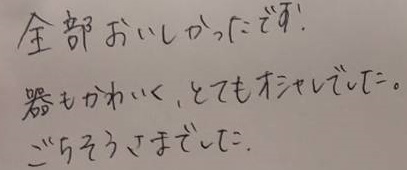 全部おいしかったです!
器もかわいく、とてもオシャレでした。
ごちそうさまでした.